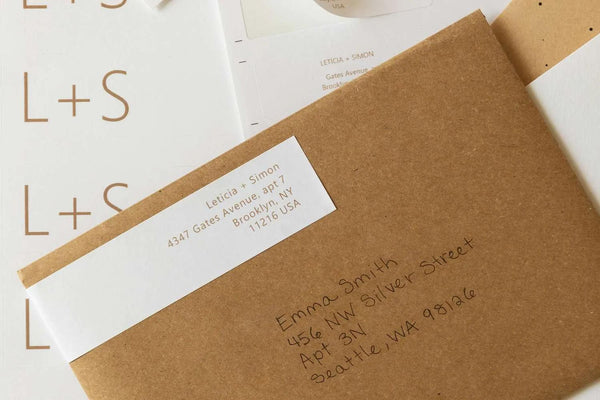 USA
L+S
LETICIA + SIMON
Gates Avenue, apt
Brooklyn,
L+S
L+S
L
Leticia + Simon
4347 Gates Avenue, apt 7
Brooklyn, NY
11216 USA
Emma Smith
456 NW Silver Street
Apt 3N
Seattle, WA 98126